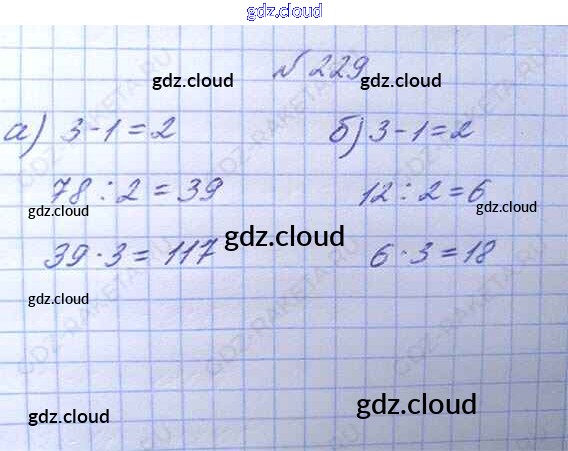 gdz.cloud
№ 229
gdz.cloud gdz.cloud
а) 3 - 1 = 2 б) 3 - 1 = 2
78 : 2 = 39 12 : 2 = 6
gdz.cloud gdz.cloud
gdz.cloud
39 · 3 = 117 6 · 3 = 18
gdz.cloud gdz.cloud
gdz.cloud
gdz.cloud
GDZ-RAKETA.RU